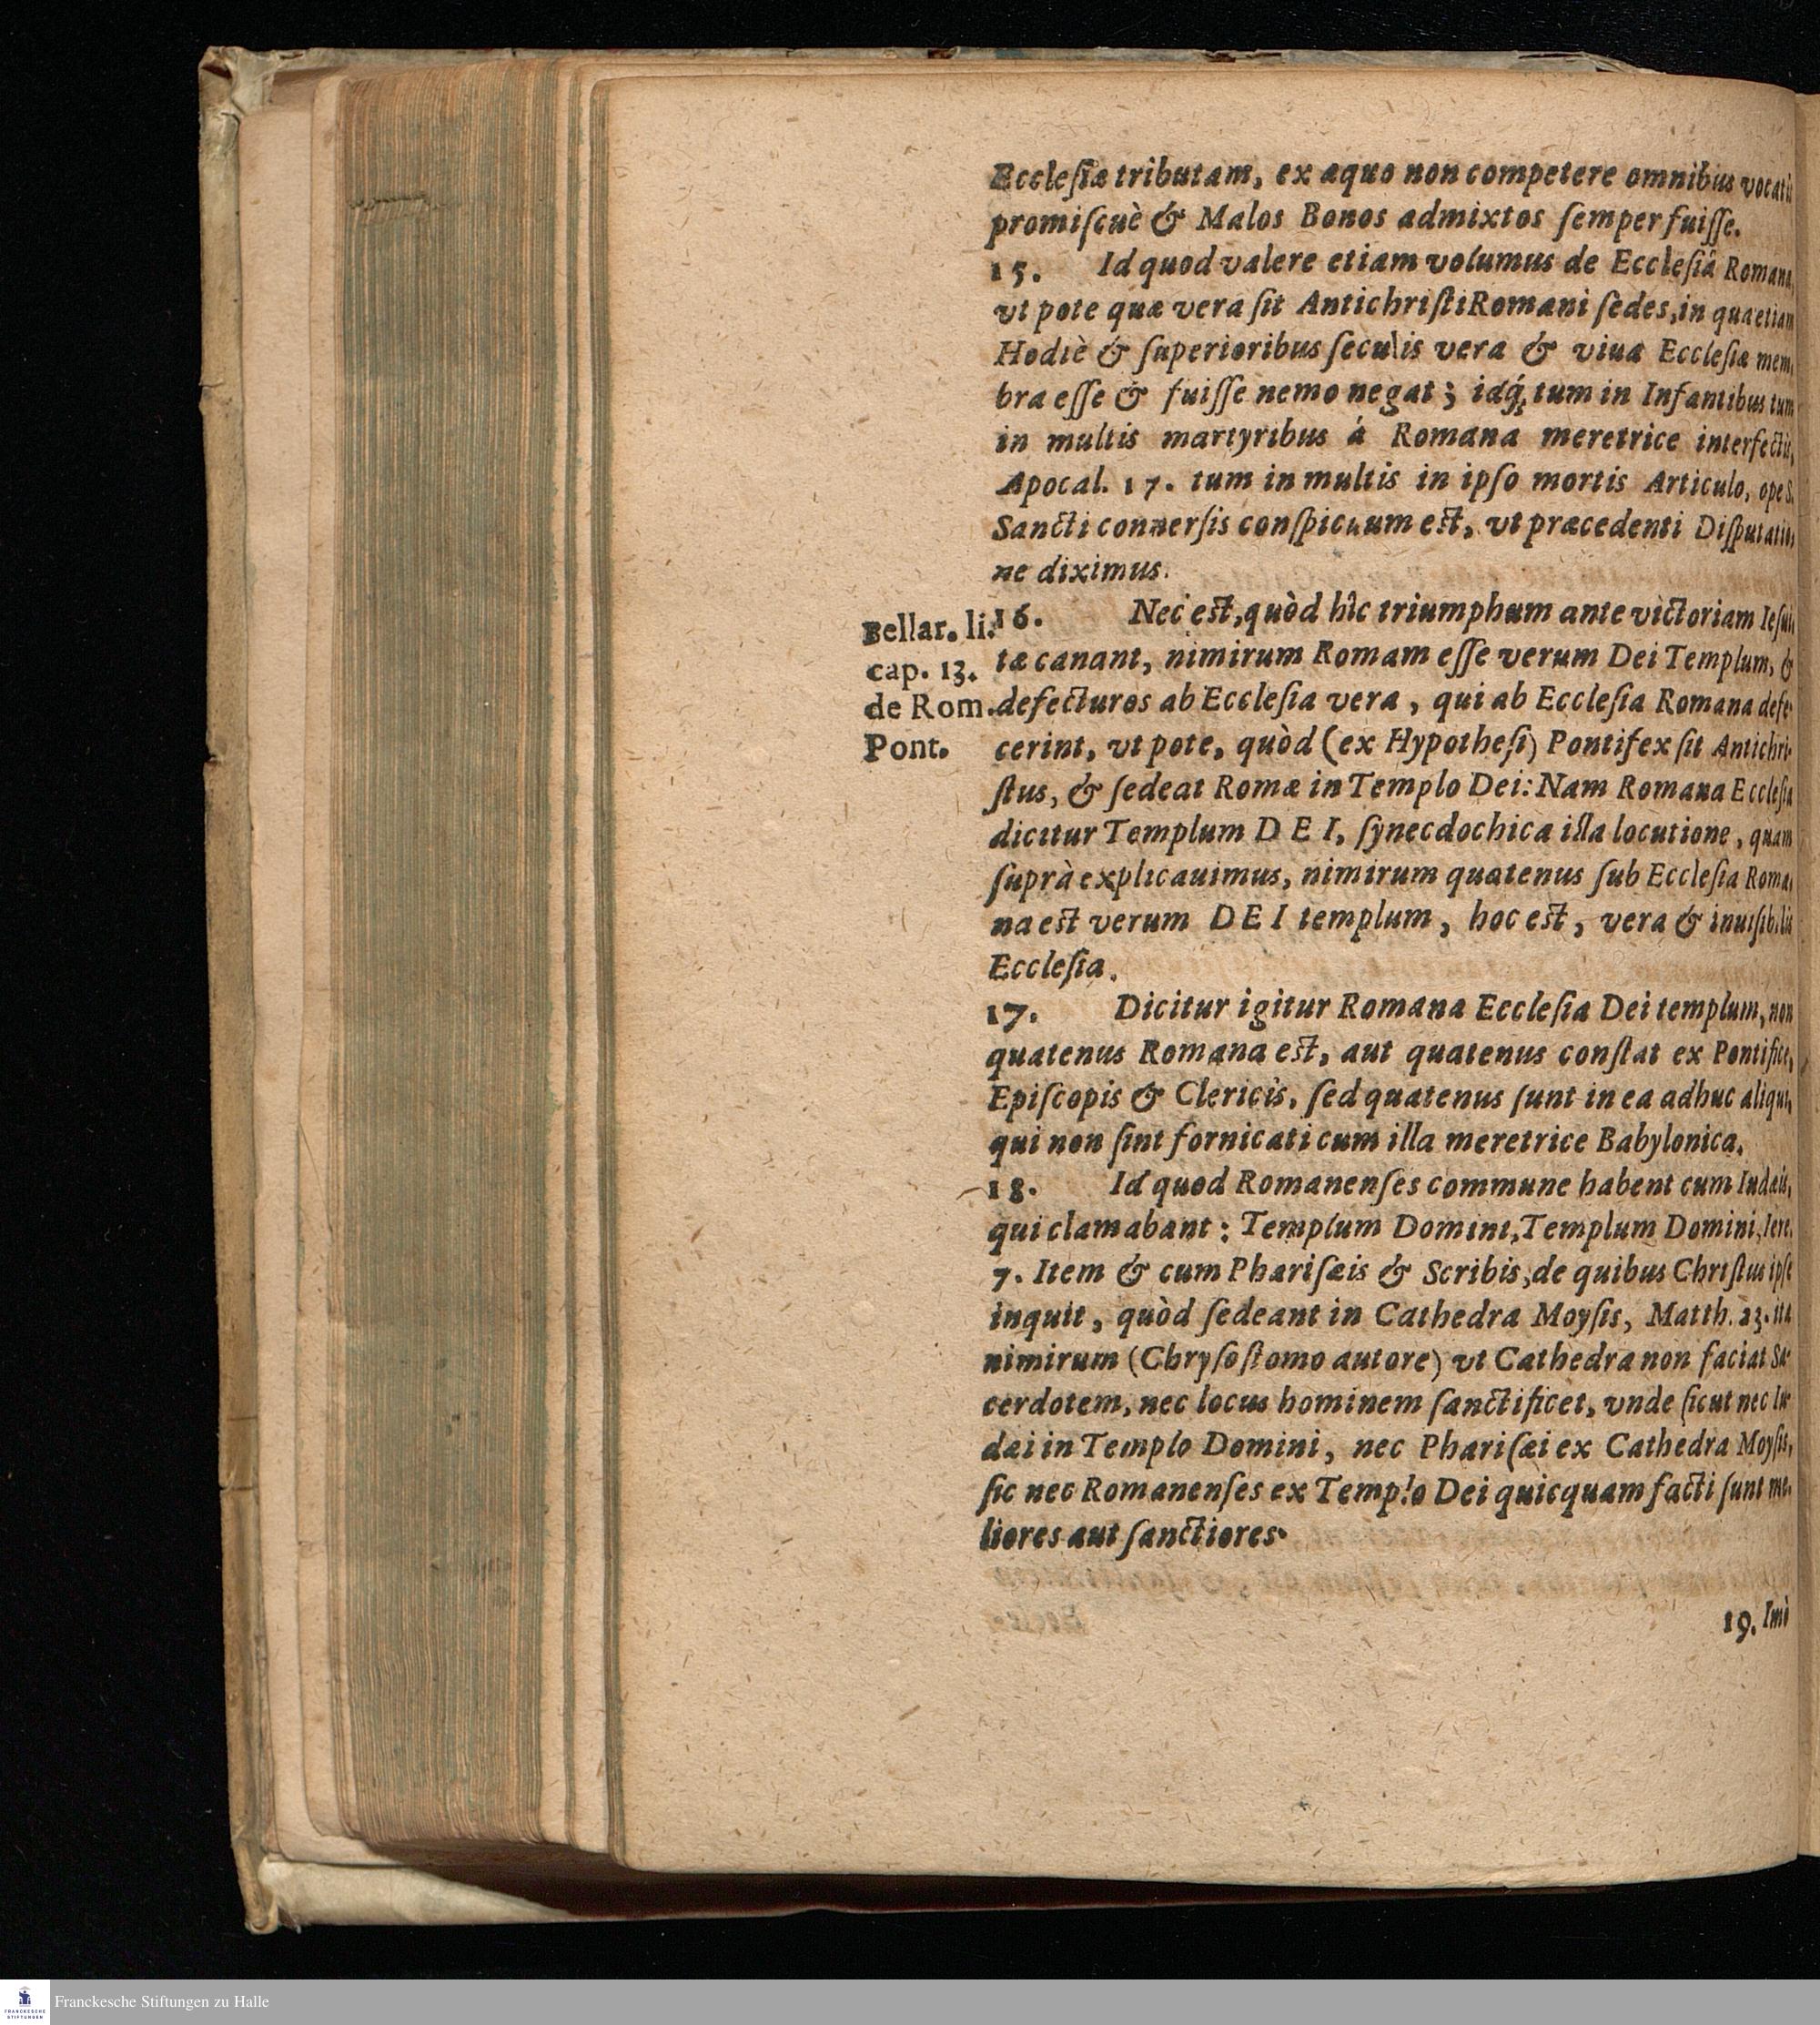 Eccleſiæ tributam, ex æquo non competere omnibus vocatis
promiſcuè & Malos Bonos admixtos ſemper fuiſſe.
15. Id quod valere etiam volumus de Eccleſiâ Romana,
vt pote quæ vera ſit Antichriſti Romani ſedes, in qua etiam
Hodiè & ſuperioribus ſeculis vera & viua Eccleſiæ mem,
bra eſſe & fuiſſe nemo negat; idq́; tum in Infantibus tum
in multis martyribus á Romana meretrice interfectis,
Apocal. 17. tum in multis in ipſo mortis Articulo, ope S.
Sancti connerſis conſpicuum eſt, vt præcedenti Diſputatio,
ne diximus.
Bellar. li.
cap. 13.
de Rom.
Pont.
16. Nec eſt, quòd hîc triumphum ante victoriam Ieſui,
tæ canant, nimirum Romam eſſe verum Dei Templum, &
defecturos ab Eccleſia vera, qui ab Eccleſia Romana defe-
cerint, vt pote, quòd (ex Hypotheſi) Pontifex ſit Antichri-
ſtus, & ſedeat Romæ in Templo Dei: Nam Romana Eccleſia
dicitur Templum DEI, ſynecdochica illa locutione, quam
ſuprà explicauimus, nimirum quatenus ſub Eccleſia Roma,
na eſt verum DEI templum, hoc eſt, vera & inuiſibilis
Eccleſia.
17. Dicitur igitur Romana Eccleſia Dei templum, non
quatenus Romana eſt, aut quatenus conſtat ex Pontifice,
Epiſcopis & Clericis, ſed quatenus ſunt in ea adhuc aliqui,
qui non ſint fornicati cum illa meretrice Babylonica.
18. Id quod Romanenſes commune habent cum Iudæis,
qui clamabant: Templum Domini, Templum Domini, Iere.
7. Item & cum Phariſæis & Scribis, de quibus Chriſtus ipſe
inquit, quòd ſedeant in Cathedra Moyſis, Matth. 23. ita
nimirum (Chryſoſtomo autore) vt Cathedra non faciat Sa-
cerdotem, nec locus hominem ſanctificet, vnde ſicut nec Iu-
dæi in Templo Domini, nec Phariſæi ex Cathedra Moyſis,
ſic nec Romanenſes ex Templo Dei quicquam facti ſunt me-
liores aut ſanctiores.
19. Imò
Franckesche Stiftungen zu Halle
FRANCKESCHE
STIFTUNGEN